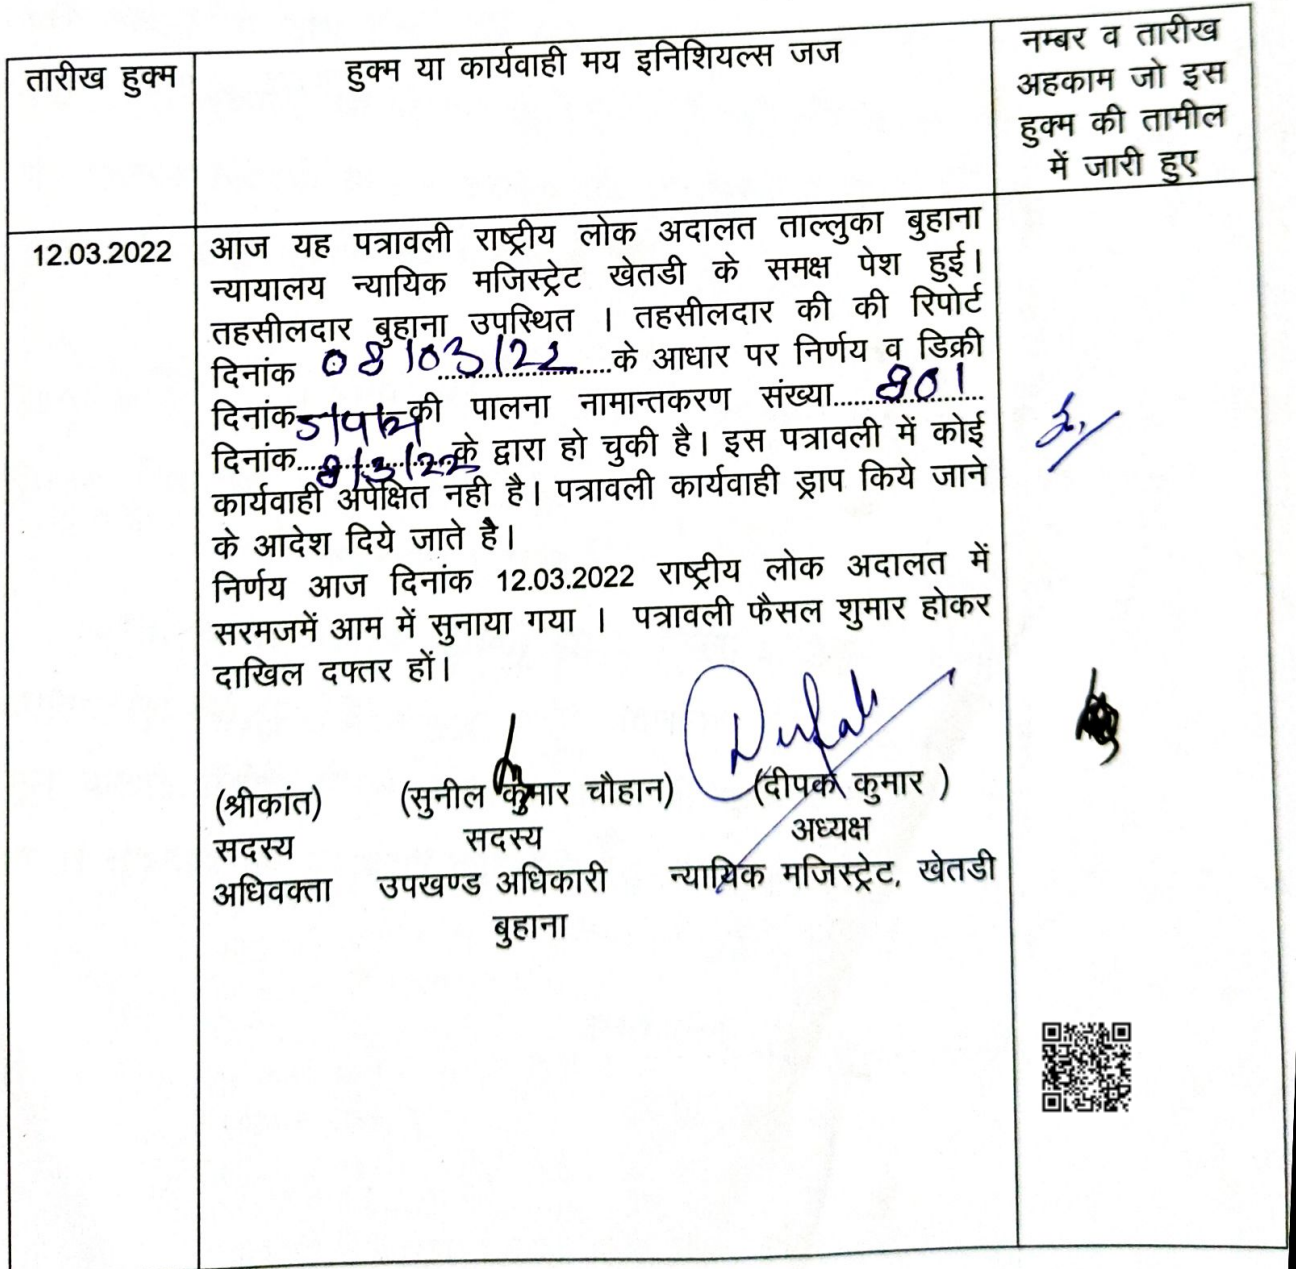 तारीख हुक्म
हुक्म या कार्यवाही मय इनिशियल्स जज
नम्बर व तारीख
अहकाम जो इस
हुक्म की तामील
में जारी हुए
12.03.2022
आज यह पत्रावली राष्ट्रीय लोक अदालत ताल्लुका बुहाना
न्यायालय न्यायिक मजिस्ट्रेट खेतडी के समक्ष पेश हुई।
तहसीलदार बुहाना उपस्थित । तहसीलदार की की रिपोर्ट
दिनांक 08/03/22 के आधार पर निर्णय व डिक्री
दिनांक की पालना नामान्तकरण संख्या 801
दिनांक 8/3/22 के द्वारा हो चुकी है। इस पत्रावली में कोई
कार्यवाही अपेक्षित नही है। पत्रावली कार्यवाही ड्राप किये जाने
के आदेश दिये जाते है।
निर्णय आज दिनांक 12.03.2022 राष्ट्रीय लोक अदालत में
सरमजमें आम में सुनाया गया । पत्रावली फैसल शुमार होकर
दाखिल दफ्तर हों।
(श्रीकांत) (सुनील कुमार चौहान) (दीपक कुमार )
सदस्य सदस्य अध्यक्ष
अधिवक्ता उपखण्ड अधिकारी न्यायिक मजिस्ट्रेट, खेतडी
बुहाना